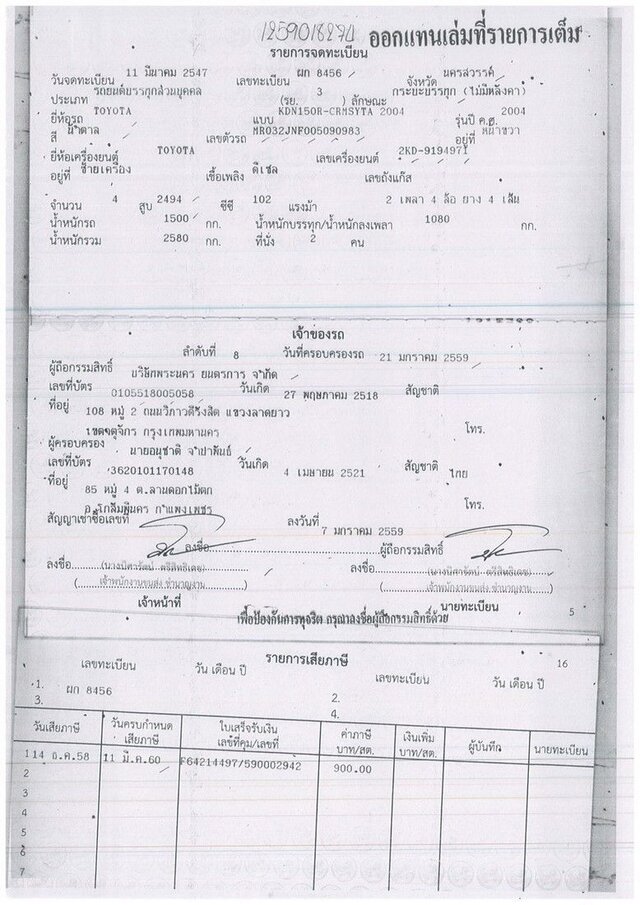 1259018270 ออกแทนเล่มที่รายการเต็ม
รายการจดทะเบียน
วันจดทะเบียน 11 มีนาคม 2547 เลขทะเบียน ผก 8456 จังหวัด นครสวรรค์
ประเภท รถยนต์บรรทุกส่วนบุคคล (รย. 3 ) ลักษณะ กระบะบรรทุก (ไม่มีหลังคา)
ยี่ห้อรถ TOYOTA แบบ KDN150R-CRMSYTA 2004 รุ่นปี ค.ศ. 2004
สี น้ำตาล เลขตัวรถ MR032JNF005090983 อยู่ที่ หน้าขวา
ยี่ห้อเครื่องยนต์ TOYOTA เลขเครื่องยนต์ 2KD-9194971
อยู่ที่ ซ้ายเครื่อง เชื้อเพลิง ดีเซล เลขถังแก๊ส
จำนวน 4 สูบ 2494 ซีซี 102 แรงม้า 2 เพลา 4 ล้อ ยาง 4 เส้น
น้ำหนักรถ 1500 กก. น้ำหนักบรรทุก/น้ำหนักลงเพลา 1080 กก.
น้ำหนักรวม 2580 กก. ที่นั่ง 2 คน
เจ้าของรถ
ลำดับที่ 8 วันที่ครอบครองรถ 21 มกราคม 2559
ผู้ถือกรรมสิทธิ์ บริษัทพระนคร ยนตรการ จำกัด
เลขที่บัตร 0105518005058 วันเกิด 27 พฤษภาคม 2518 สัญชาติ
ที่อยู่ 108 หมู่ 2 ถนนวิภาวดีรังสิต แขวงลาดยาว
เขตจตุจักร กรุงเทพมหานคร โทร.
ผู้ครอบครอง นายอนุชาติ จำปาพันธ์
เลขที่บัตร 3620101170148 วันเกิด 4 เมษายน 2521 สัญชาติ ไทย
ที่อยู่ 85 หมู่ 4 ต.ลานดอกไม้ตก
อ.โกสัมพีนคร กำแพงเพชร โทร.
สัญญาเช่าซื้อเลขที่ ลงวันที่ 7 มกราคม 2559
ลงชื่อ ผู้ถือกรรมสิทธิ์
ลงชื่อ (นางนิศารัตน์ ตรีสิทธิเดช) ลงชื่อ (นางนิศารัตน์ ตรีสิทธิเดช)
(เจ้าพนักงานขนส่ง ชำนาญงาน) (เจ้าพนักงานขนส่ง ชำนาญงาน)
เจ้าหน้าที่ นายทะเบียน 5
เพื่อป้องกันการทุจริต กรุณาลงชื่อผู้ถือกรรมสิทธิ์ด้วย
รายการเสียภาษี 16
เลขทะเบียน วัน เดือน ปี เลขทะเบียน วัน เดือน ปี
1. ผก 8456 2.
3. 4.
วันเสียภาษี วันครบกำหนดเสียภาษี ใบเสร็จรับเงิน เลขที่คุม/เลขที่ ค่าภาษี บาท/สต. เงินเพิ่ม บาท/สต. ผู้บันทึก นายทะเบียน
1 14 ธ.ค.58 11 มี.ค.60 F64214497/590002942 900.00
2
3
4
5
6
7